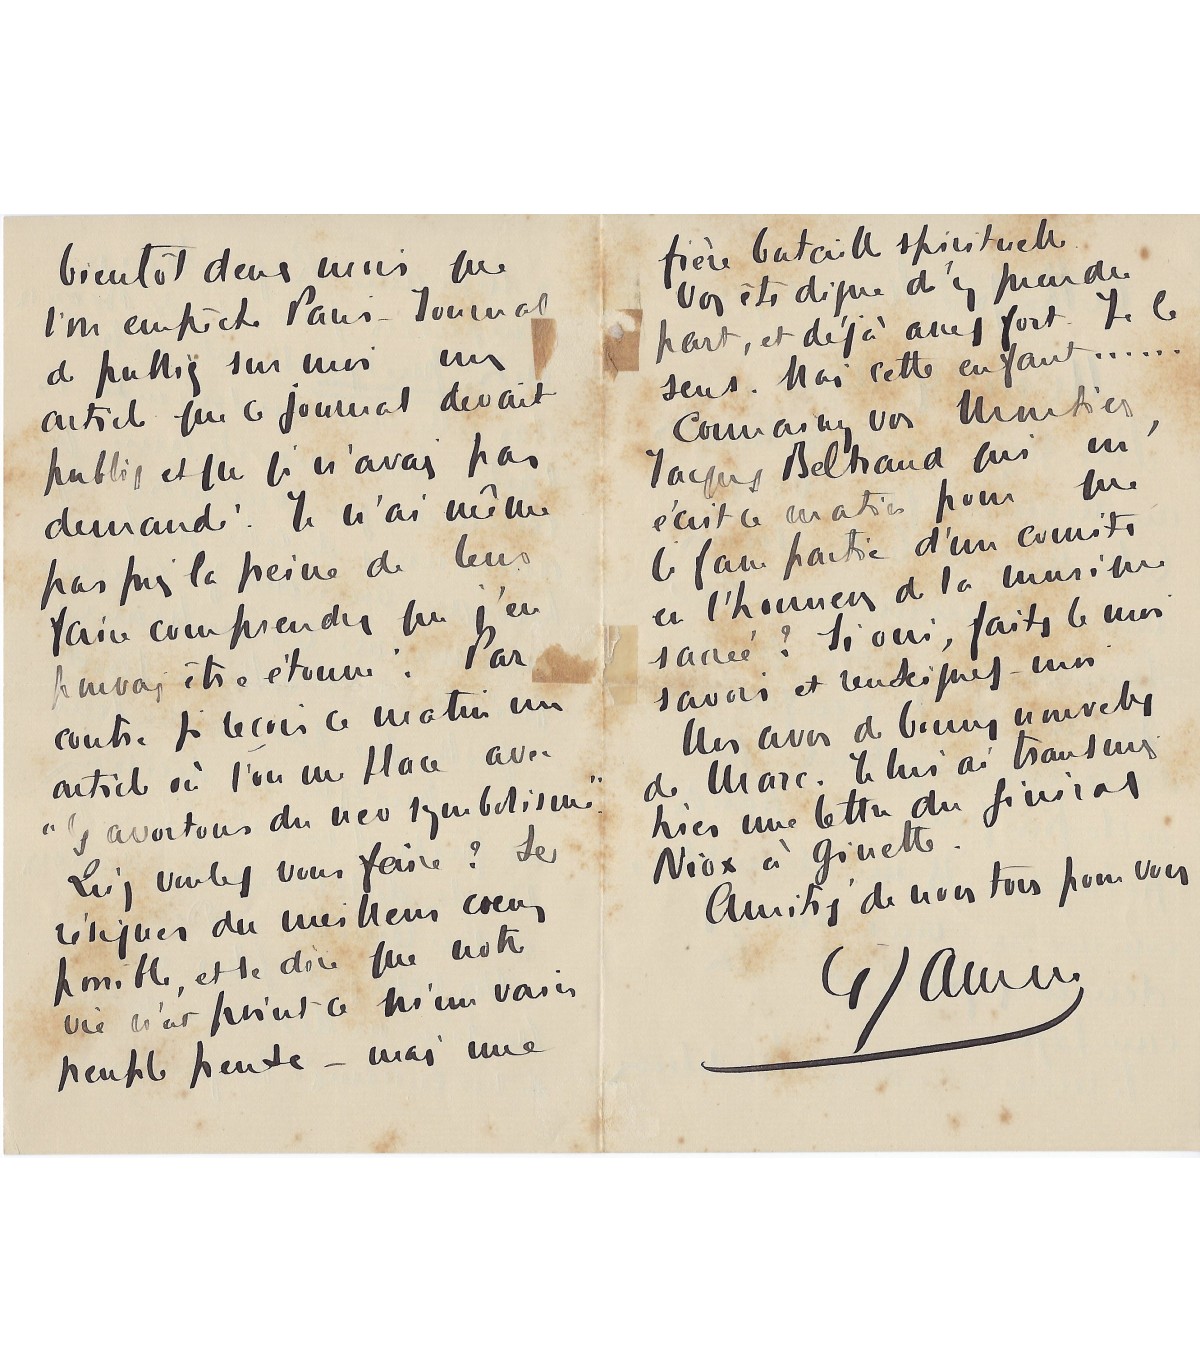 bientôt deux mois que
l'on empêche Paris-Journal
de publier sur moi un
article que ce journal devait
publier et que je n'avais pas
demandé. Je n'ai même
pas pris la peine de leur
faire comprendre que j'en
pouvais être étonné. Par
contre je reçois ce matin un
article où l'on me place avec
"les avortons du neo symbolisme".
Que voulez vous faire ? Se
résigner du meilleur coeur
possible, et se dire que notre
vie n'est point ce qu'un vain
peuple pense — mais une
fière bataille spirituelle.
Vous êtes digne d'y prendre
part, et déjà assez fort. Je le
sens. Mais cette enfant......
Connaissez vous Monsieur
Jacques Beltrand qui m'
écrit ce matin pour que
je fasse partie d'un comité
en l'honneur de la musique
sacrée ? Si oui, faites le moi
savoir et renseignez-moi.
Nous avons de bonnes nouvelles
de Marc. Je lui ai transmis
hier une lettre du général
Niox à Ginette.
Amitiés de nous tous pour vous